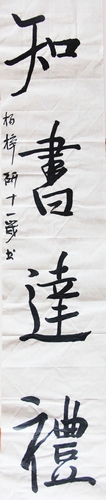 知書達禮
柏梓研十一歲书